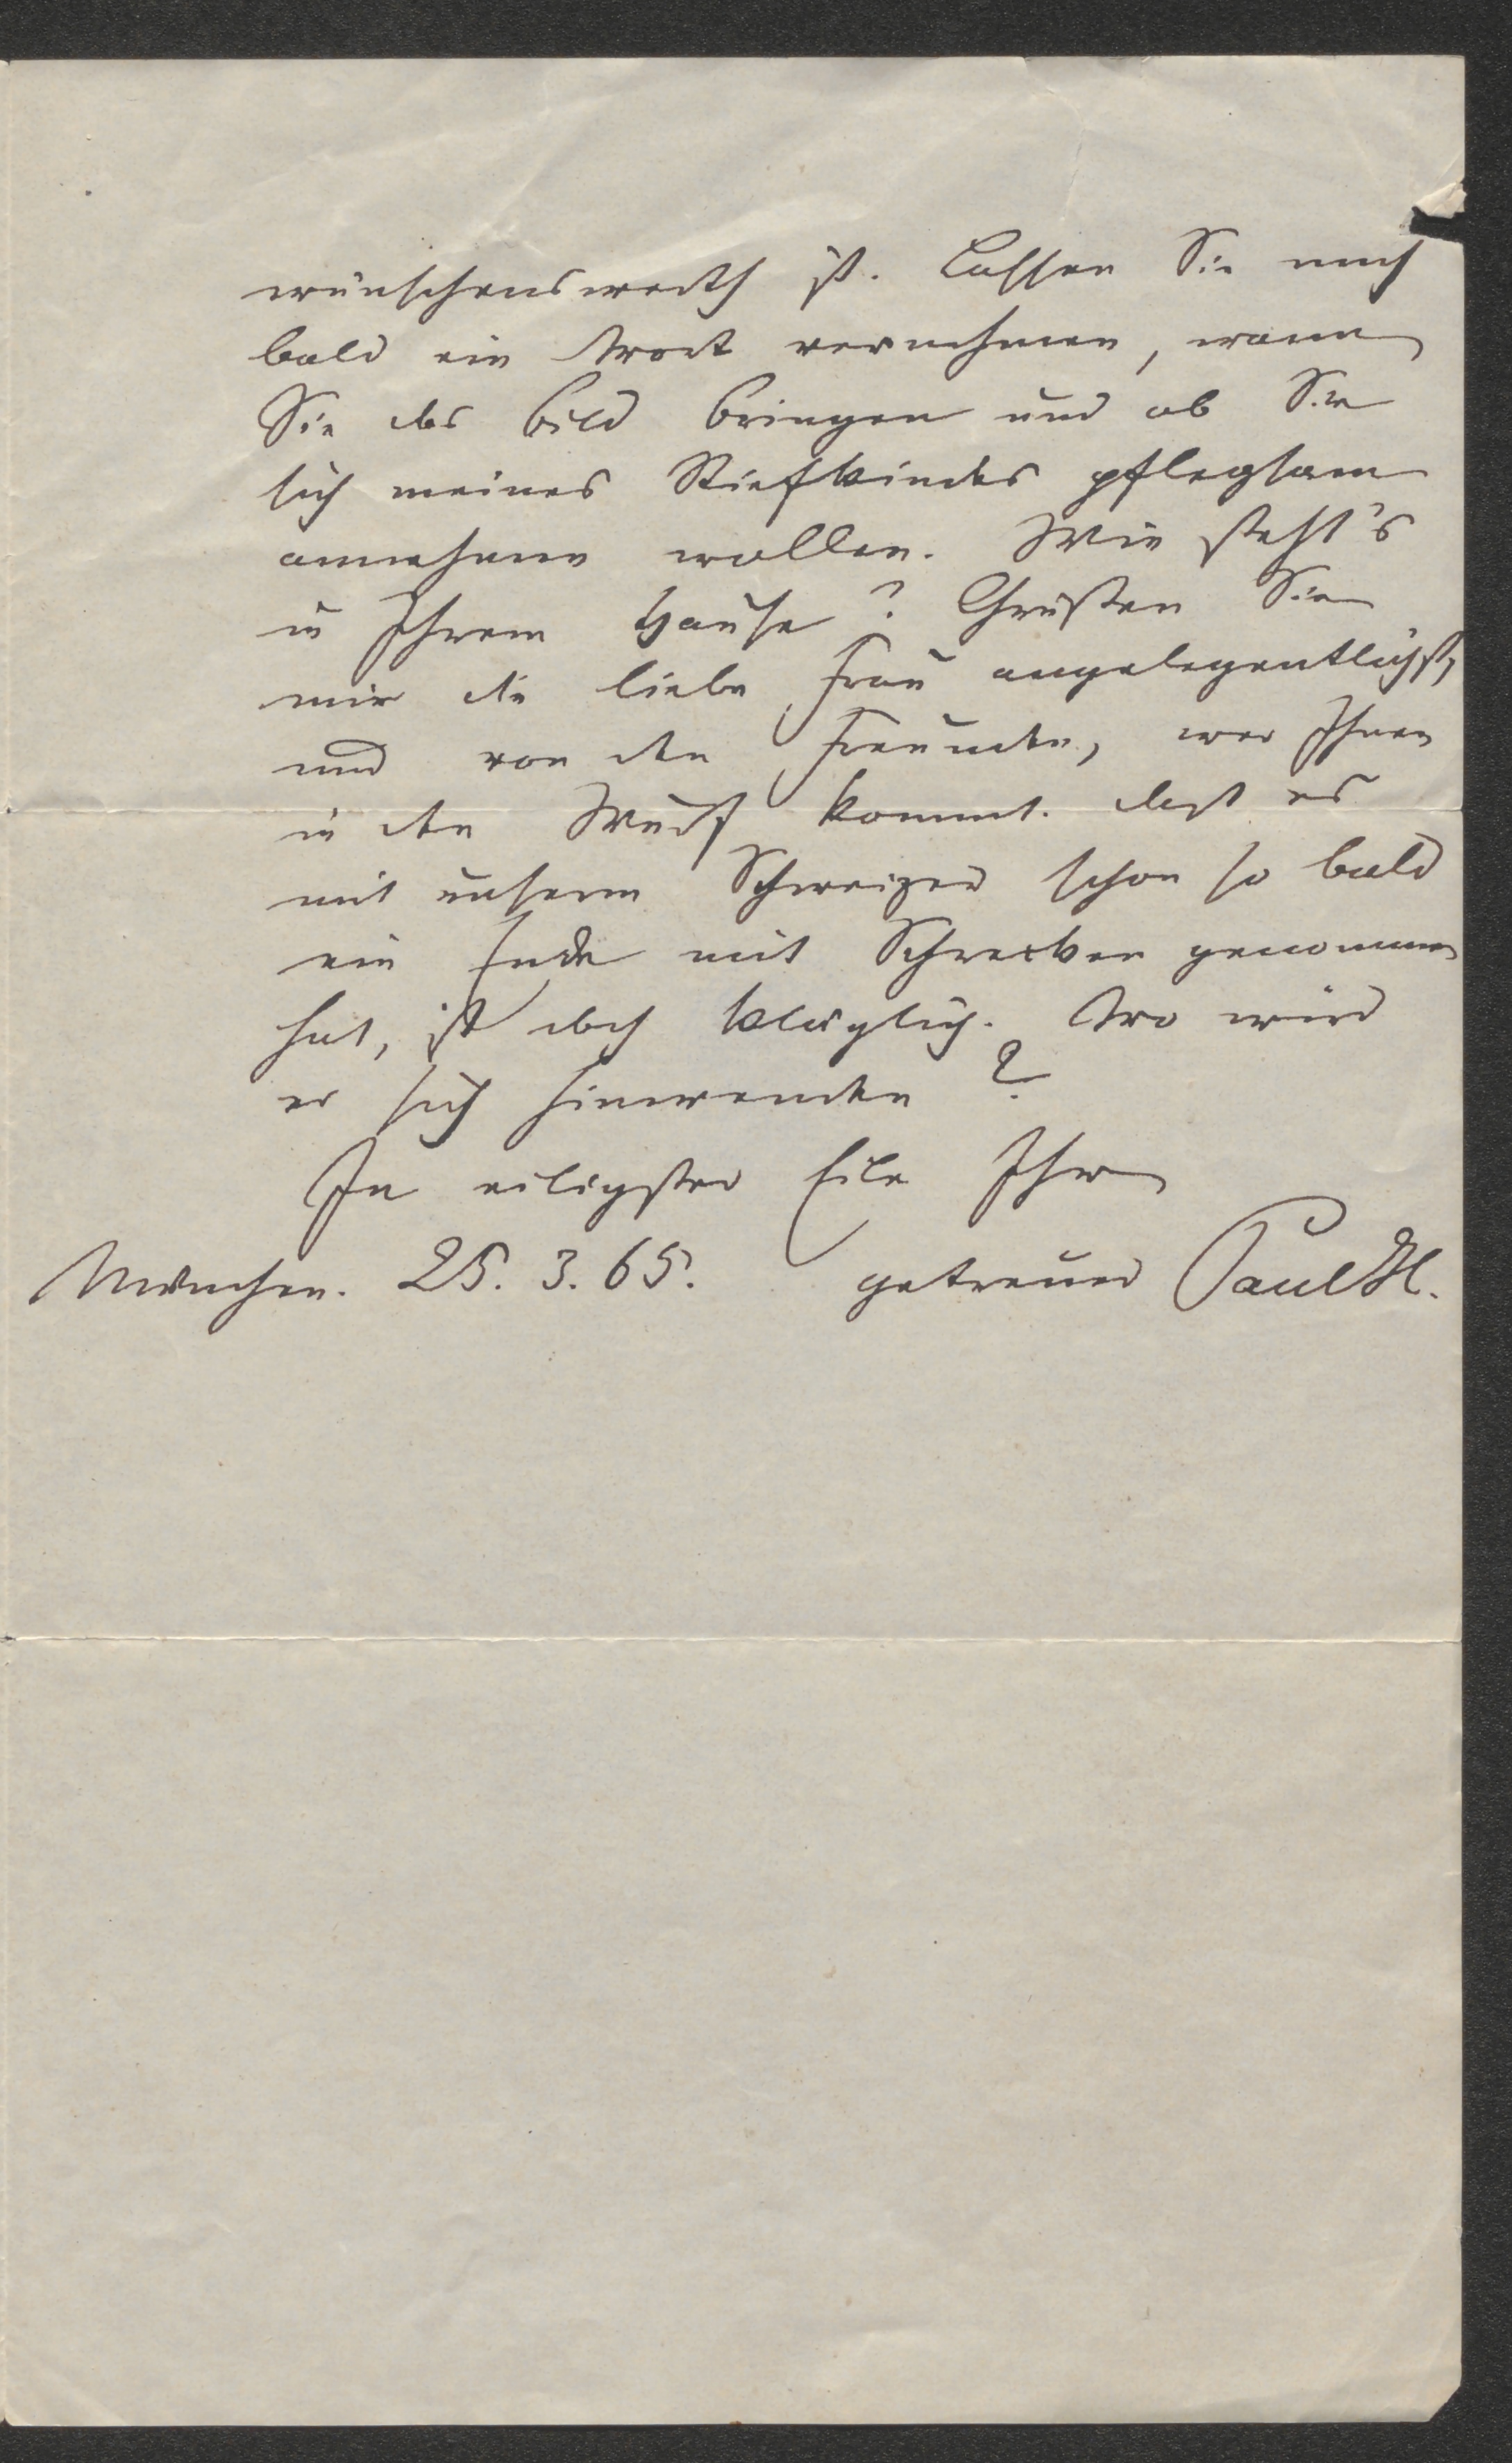 wünschenswerth ist. Lassen Sie mich
bald ein Wort vernehmen, wann
Sie das Bild bringen und ob Sie
sich meines Stiefkindes pflegsam
annehmen wollen. Wie steht's
in Ihrem Hause? Grüßen Sie
mir die liebe Frau angelegentlichst,
und von den Freunden, wer Ihnen
in den Wurf kommt. Daß es
mit unserm Schweizer schon so bald
ein Ende mit Schrecken genommen
hat, ist doch kläglich. Wo wird
er sich hinwenden?
In eiligster Eile Ihr
München. 25. 3. 65. getreuer Paul H.